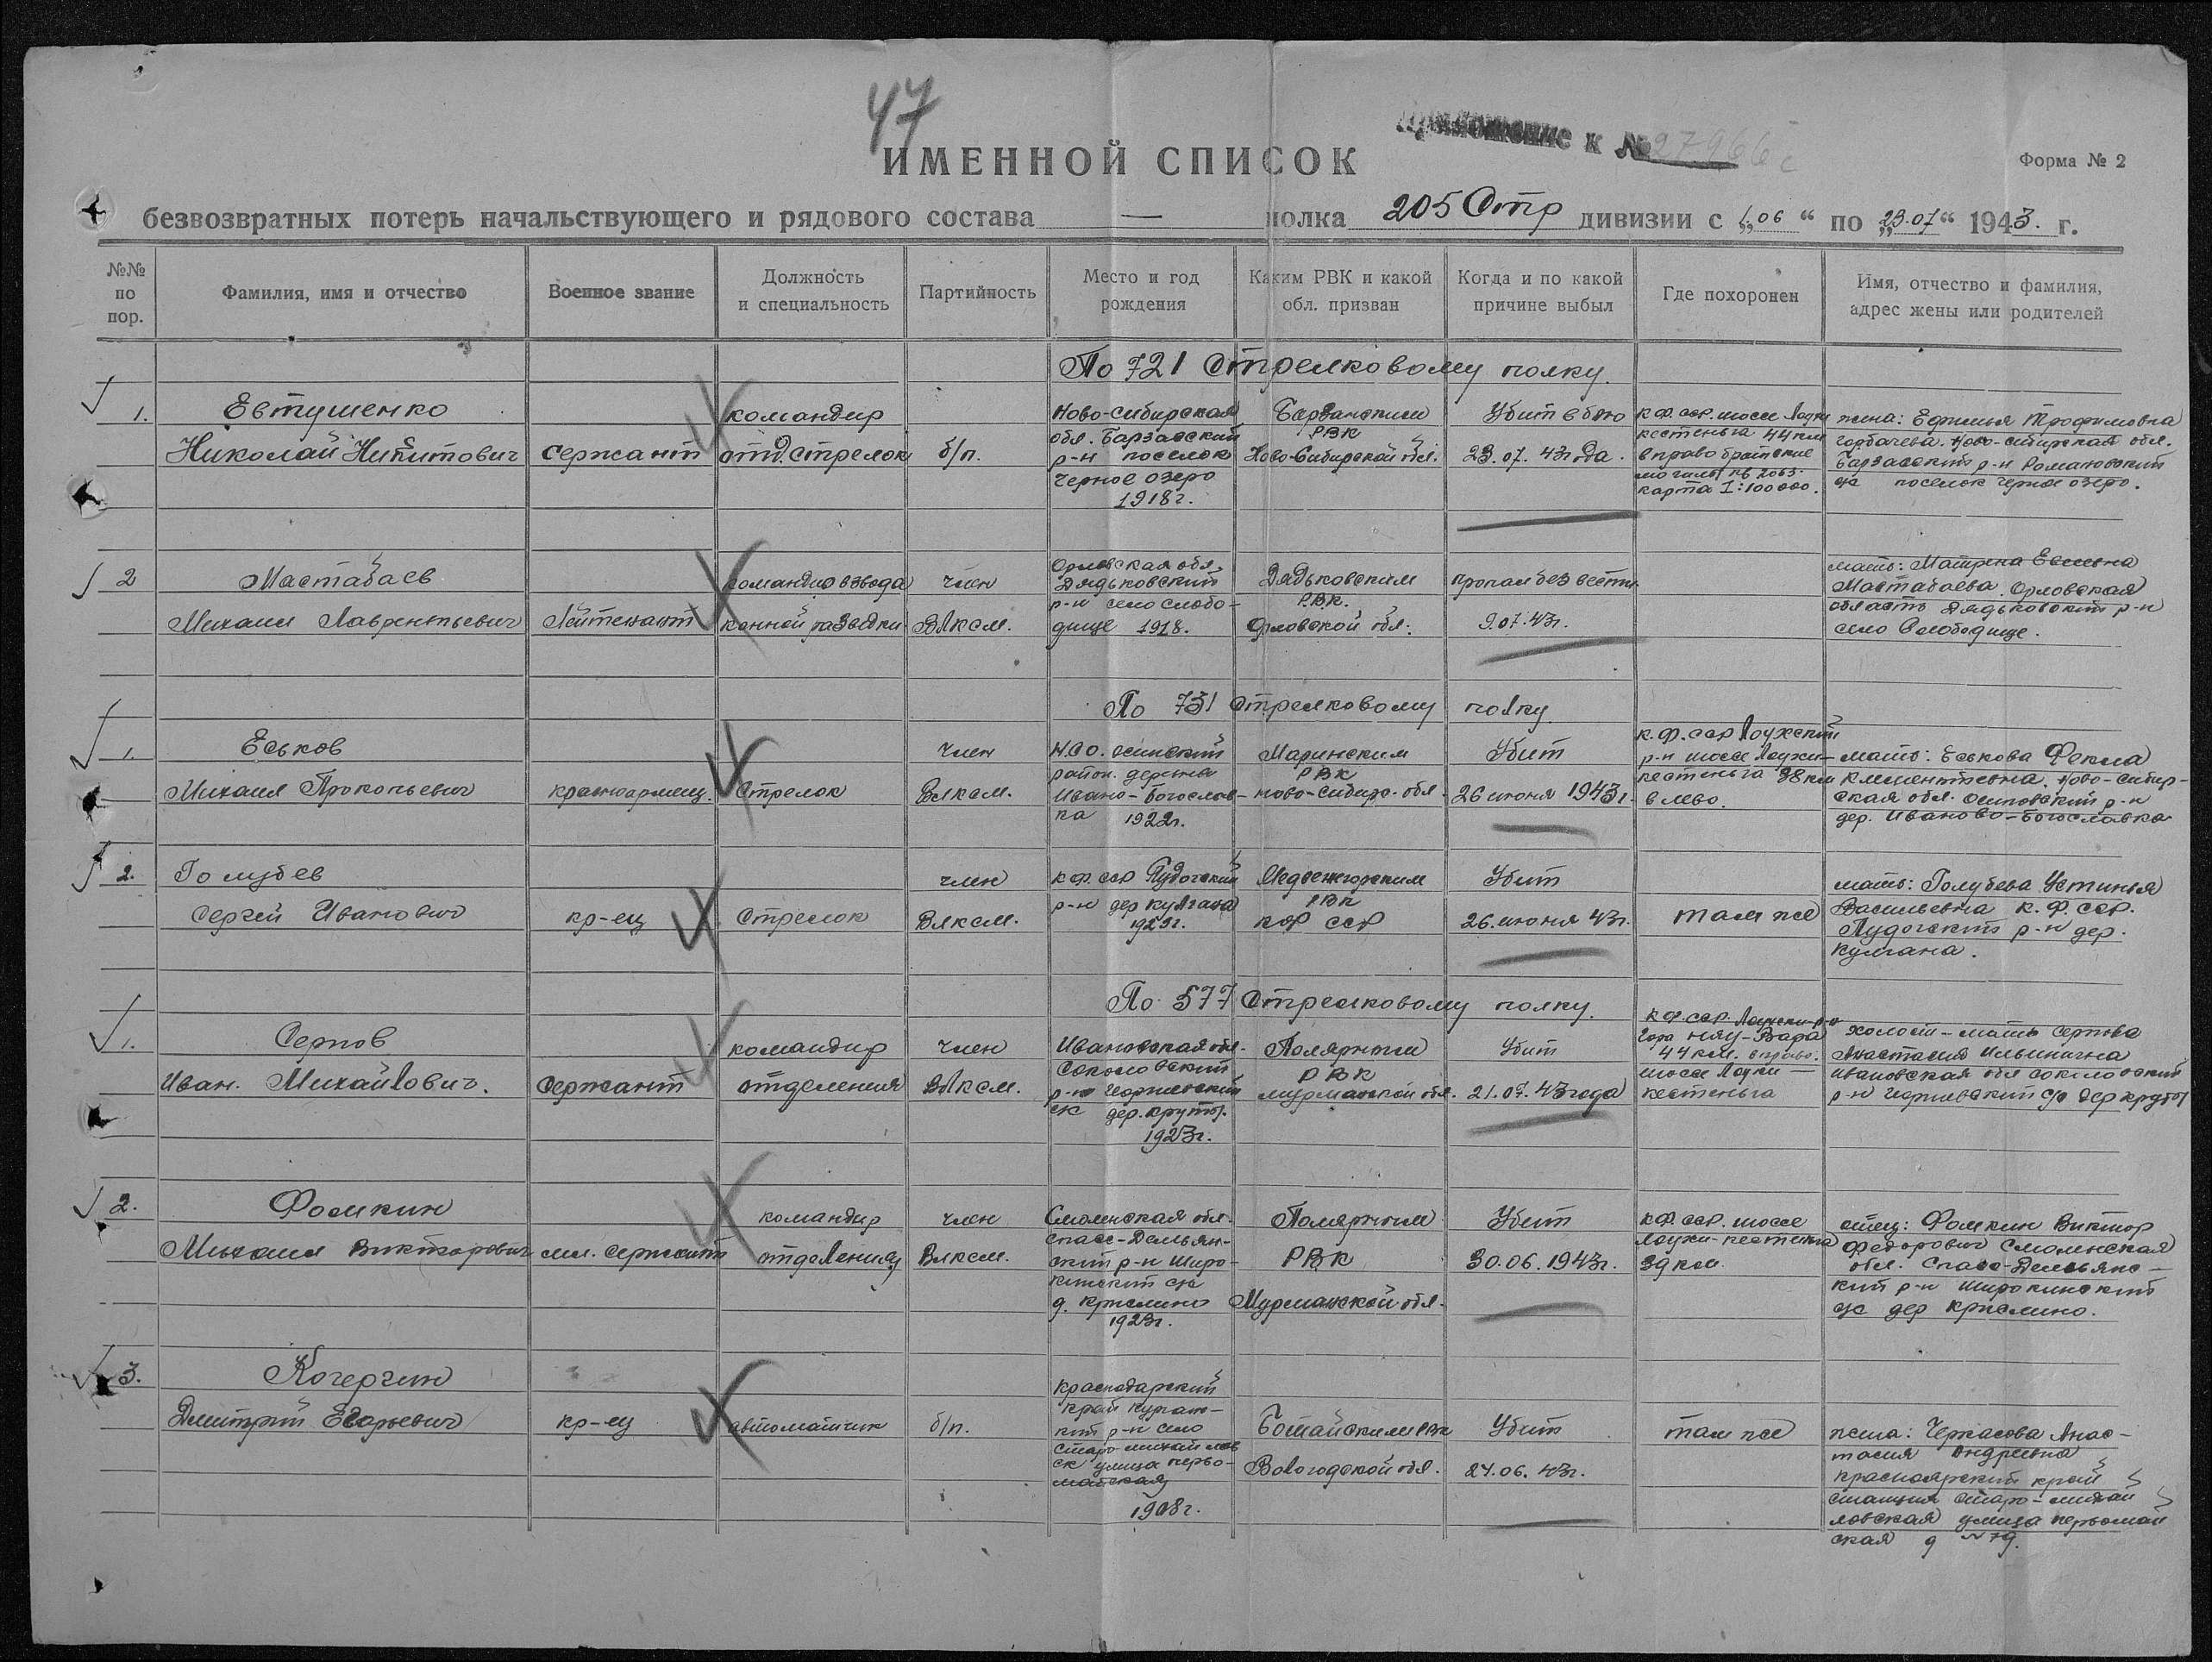 47
Приложение к № 27966с
ИМЕННОЙ СПИСОК
Форма № 2
безвозвратных потерь начальствующего и рядового состава — полка 205 Стр дивизии с „1.06“ по „23.07“ 1943. г.
№№ по пор.
Фамилия, имя и отчество
Военное звание
Должность и специальность
Партийность
Место и год рождения
Каким РВК и какой обл. призван
Когда и по какой причине выбыл
Где похоронен
Имя, отчество и фамилия, адрес жены или родителей
По 721 Стрелковому полку.
1.
Евтушенко
Николай Никитович
сержант
командир
отд. стрелок
б/п.
Ново-сибирская
обл. Барзасский
р-н поселок
Черное озеро
1918г.
Барзанским
РВК
Ново-Сибирской обл.
Убит в бою
23.07.43 года.
к.ф.сср. шоссе Лоухи
кестеньга 44 км
вправо братские
могилы кв 2063.
карта 1:100000.
жена: Ефимья Трофимовна
Горбачева. Ново-сибирская обл.
Барзасский р-н Романовский
с/с поселок Черное озеро.
2
Мастабаев
Михаил Лаврентьевич
Лейтенант
командир взвода
конной разведки
член
Влксм.
Орловская обл.
Дядьковский
р-н село Слобо-
дище 1918.
Дядьковским
РВК.
Орловской обл.
пропал без вести
9.07.43г.
мать: Матрена
Мастабаева Орловская
область Дядьковский р-н
село Слободище.
По 731 Стрелковому полку
1.
Еськов
Михаил Прокопьевич
красноармеец.
Стрелок
член
Влксм.
Н.с.о.
район. деревня
Ивано-Богослов-
ка 1922г.
Маринским
РВК
ново-сибирс. обл.
Убит
26 июня 1943г.
к.ф.сср Лоухский
р-н шоссе Лоухи-
кестеньга 38 км
влево.
мать: Еськова Фекла
Клементьевна. Ново-сибир-
ская обл. р-н
дер. Иваново-Богославка
2.
Голубев
Сергей Иванович
кр-ец
Стрелок
член
Влксм.
к.ф.сср Пудожский
р-н дер Кулгана
Медвежгорским
РВК
кф сср
Убит
26. июня 43г.
там же
мать: Голубева Устинья
Васильевна к.ф.сср.
Пудожский р-н дер.
Кулгана.
По 577 Стрелковому полку.
1.
Серпов
Иван. Михайлович.
Сержант
командир
отделения
член
Влксм.
Ивановская обл.
Сокольский
р-н Георгиевский
с/с дер. Круты.
1923г.
Полярным
РВК
мурманской обл.
Убит
21.07.43 года
кф сср. Лоухски р-н
Гора Няу-Вара
44 км. вправо.
шоссе Лоухи —
кестеньга
холост-мать Серпова
Анастасия Ильинична
Ивановская обл Сокольский
р-н Георгиевский с/с дер Круты
2.
Фомкин
Михаил Викторович
мл. сержант
командир
отделения
член
Влксм.
Смоленская обл.
Спасс-Демьян-
ский р-н Широ-
кинский с/с
д.
1923г.
Полярным
РВК
Мурманской обл.
Убит
30.06.1943г.
к.ф.сср. шоссе
Лоухи-кестеньга
39 км
отец: Фомкин Виктор
Федорович Смоленская
обл. Спасс-Демьянс-
кий р-н Широкинский
с/с дер
3.
Кочергин
Дмитрий Егорьевич
кр-ец
автоматчик
б/п.
краснодарский
край
р-н село
Старо-михайлов
ск улица перво-
майская
1908г.
РВК
Вологодской обл.
Убит
24.06.43г.
там же
жена: Черкасова Анас-
тасия Андреевна
красноярский край
станция старо-михай
ловская улица первомай
ская д №79.